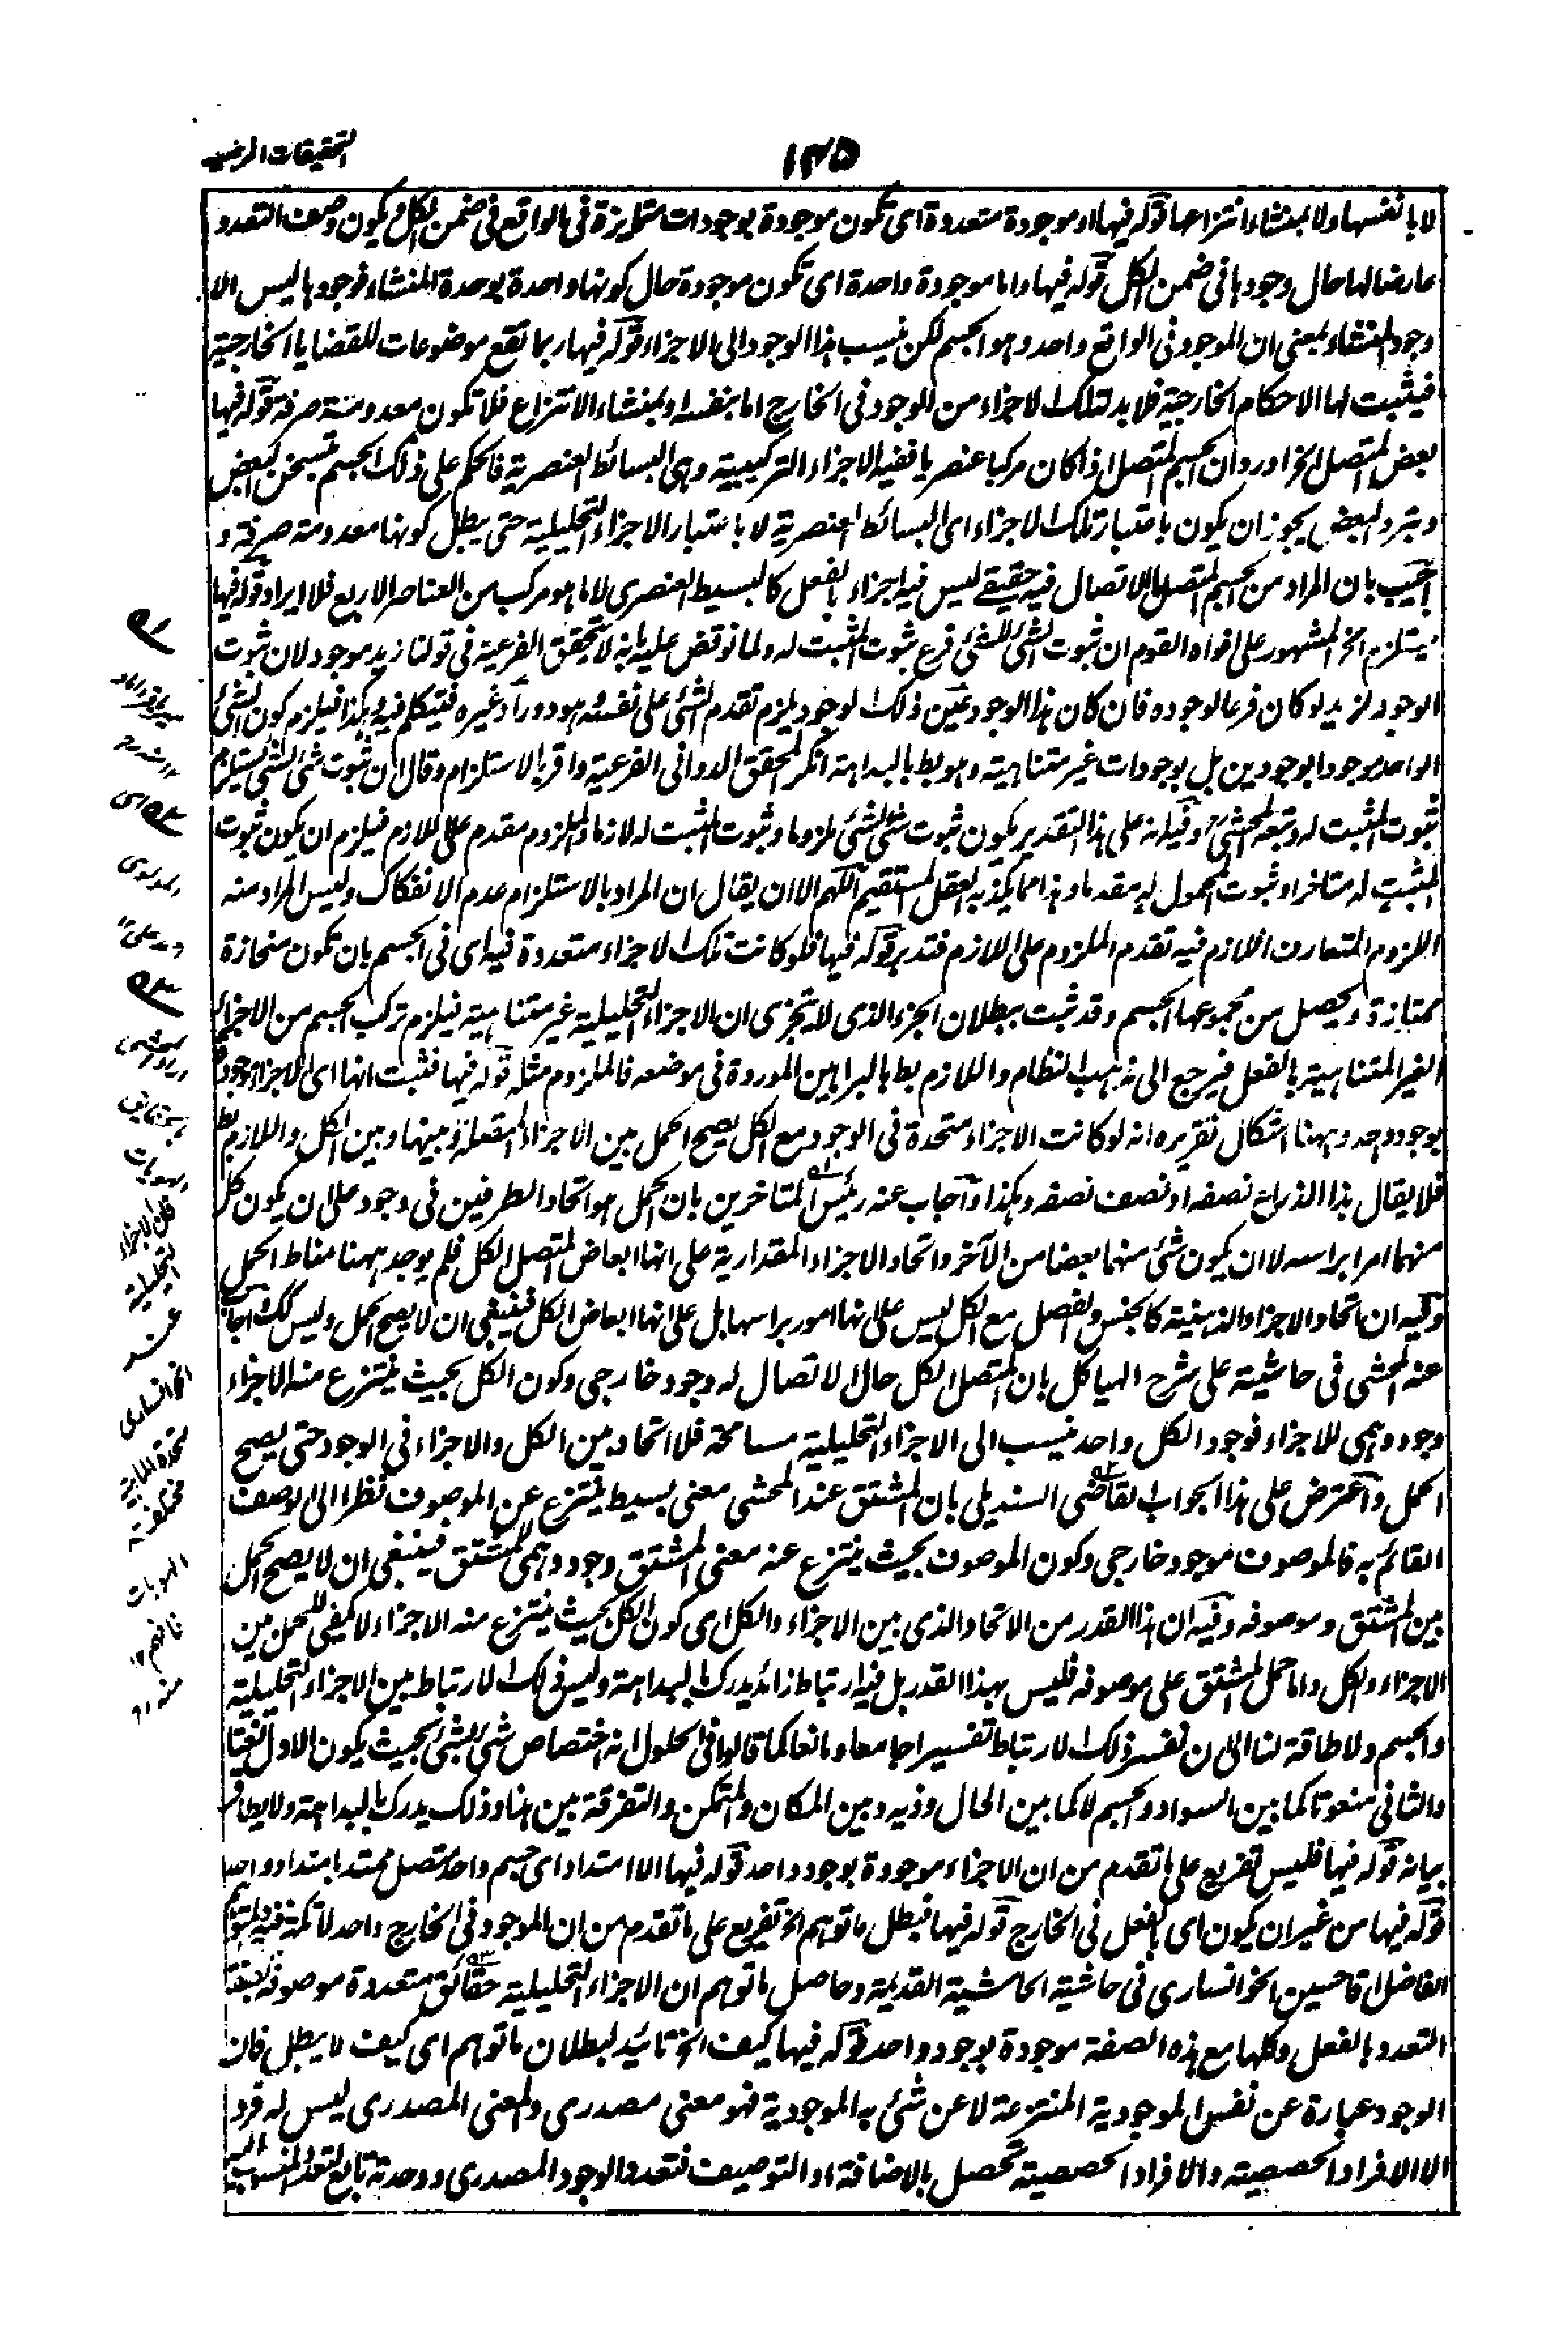 التحقيقات المرضيه
١٢٥
لا بانفسها ولا بمنشاء انتزاعها قوله فيها او موجودة متعددة اى تكون موجودة بوجودات متمايزة فى الواقع فى ضمن الكل ويكون وصف التعدد
عارضا لها حال وجودها فى ضمن الكل قوله فيها واما موجودة واحدة اى تكون موجودة حال كونها واحدة بوحدة المنشاء فوجودها ليس الا
وجود المنشاء بمعنى ان الموجود فى الواقع واحد وهو الجسم لكن ينسب هذا الوجود الى الاجزاء قوله فيها ربما تقع موضوعات للقضايا الخارجية
فيثبت لها الاحكام الخارجية فلا بد لتلك الاجزاء من الوجود فى الخارج اما بنفسه او بمنشاء الانتزاع فلا تكون معدومة صرفة قوله فيها
بعض المتصل الخ اورد ان الجسم المتصل اذا كان مركبا عنصريا ففيه الاجزاء التركيبية وهى البسائط العنصرية فالحكم على ذلك الجسم بتسخن البعض
وتبرد البعض يجوز ان يكون باعتبار تلك الاجزاء اى البسائط العنصرية لا باعتبار الاجزاء التحليلية حتى يبطل كونها معدومة صرفة و
اجيب بان المراد من الجسم المتصل ما الاتصال فيه حقيقے ليس فيه اجزاء بالفعل كالبسيط العنصرى لا ما هو مركب من العناصر الاربع فلا ايراد قوله فيها
يستلزم الخ المشهور على افواه القوم ان ثبوت الشئ للشئ فرع ثبوت المثبت له ولما نوقض عليه بانه لا يتحقق الفرعية فى قولنا زيد موجود لان ثبوت
الوجود لزيد لو كان فرعا لوجوده فان كان هذا الوجود عين ذلك الوجود يلزم تقدم الشئ على نفسه وهو دور او غيره فنتكلم فيه وهكذا فيلزم كون الشئ
الواحد موجودا بوجودين بل بوجودات غير متناهية وهو بط بالبداهة انكر المحقق الدوانى الفرعية واقر بالاستلزام وقال ان ثبوت شئ لشئ يستلزم
ثبوت المثبت له وتبعه المحشى وفيه انه على هذا التقدير يكون ثبوت شئ لشئ ملزوما وثبوت المثبت له لازما والملزوم مقدم على اللازم فيلزم ان يكون ثبوت
المثبت له متاخرا وثبوت المحمول له مقدما وهذا مما يكذبه العقل المستقيم اللهم الا ان يقال ان المراد بالاستلزام عدم الانفكاك وليس المراد منه
اللزوم المتعارف اللازم فيه تقدم الملزوم على اللازم فتدبر قوله فيها فلو كانت تلك الاجزاء متعددة فيه اى فى الجسم بان تكون منحازة
ممتازة ويحصل من مجموعها الجسم وقد ثبت ببطلان الجزء الذى لا يتجزى ان الاجزاء التحليلية غير متناهية فيلزم تركب الجسم من الاجزاء
الغير المتناهية بالفعل فيرجع الى مذهب النظام واللازم بط بالبراهين الموردة فى موضعه فالملزوم مثله قوله فيها فثبت انها اى الاجزاء موجودة
بوجود واحد وههنا اشكال تقريره انه لو كانت الاجزاء متحدة فى الوجود مع الكل يصح الحمل بين الاجزاء المتصلة وبينها وبين الكل واللازم بط
فلا يقال هذا الذراع نصفه او نصف نصفه وهكذا واجاب عنه رئيس المتاخرين بان الحمل هو اتحاد الطرفين فى وجود على ان يكون كل
منهما امرا براسه لا ان يكون شئ منهما بعضا من الآخر واتحاد الاجزاء المقدارية على انها ابعاض المتصل الكل فلم يوجد ههنا مناط الحمل
وفيه ان اتحاد الاجزاء الذهنية كالجنس والفصل مع الكل ليس على انها امور براسها بل على انها ابعاض الكل فينبغى ان لا يصح الحمل وليس كك اجاب
عنه المحشى فى حاشيته على شرح الهياكل بان المتصل الكل حال الاتصال له وجود خارجى وكون الكل بحيث ينتزع منه الاجزاء
وجود وهمى للاجزاء فوجود الكل واحد ينسب الى الاجزاء التحليلية مسامحة فلا اتحاد بين الكل والاجزاء فى الوجود حتى يصح
الحمل واعترض على هذا الجواب القاضى السنديلى بان المشتق عند المحشى معنى بسيط ينتزع عن الموصوف نظرا الى الوصف
القائم به فالموصوف موجود خارجى وكون الموصوف بحيث ينتزع عنه معنى المشتق وجود وهمى للمشتق فينبغى ان لا يصح الحمل
بين المشتق وموصوفه وفيه ان هذا القدر من الاتحاد الذى بين الاجزاء والكل اى كون الكل بحيث ينتزع منه الاجزاء لا يكفى للحمل بين
الاجزاء والكل واما حمل المشتق على موصوفه فليس بهذا القدر بل فيه ارتباط زائد يدرك بالبداهة وليس ذلك الارتباط بين الاجزاء التحليلية
والجسم ولا طاقة لنا الى ان نفسر ذلك الارتباط تفسيرا جامعا ومانعا كما قالوا فى الحلول انه اختصاص شئ بشئ بحيث يكون الاول نعتا
والثانى منعوتا كما بين السواد والجسم لا كما بين الحال وذيه وبين المكان والمتمكن والتفرقة بين هذا وذلك يدرك بالبداهة ولا يطاق
بيانه قوله فيها فليس تفريع على ما تقدم من ان الاجزاء موجودة بوجود واحد قوله فيها الا امتداد اى جسم واحد متصل ممتد بامتداد واحد
قوله فيها من غير ان يكون اى بالفعل فى الخارج قوله فيها فبطل ما توهم الخ تفريع على ما تقدم من ان الموجود فى الخارج واحد لا تكثر فيه والمتوهم
الفاضل اقا حسين الخوانسارى فى حاشية الحاشية القديمة وحاصل ما توهم ان الاجزاء التحليلية حقائق متعددة موصوفة بصفة
التعدد بالفعل وكلها مع هذه الصفة موجودة بوجود واحد قوله فيها كيف الخ تائيد لبطلان ما توهم اى كيف لا يبطل فان
الوجود عبارة عن نفس الموجودية المنتزعة لا عن شئ به الموجودية فهو معنى مصدرى والمعنى المصدرى ليس له فرد
الا الافراد الحصصية والافراد الحصصية تحصل بالاضافة او التوصيف فتعدد الوجود المصدرى ووحدته تابع لتعدد المنسوب اليه